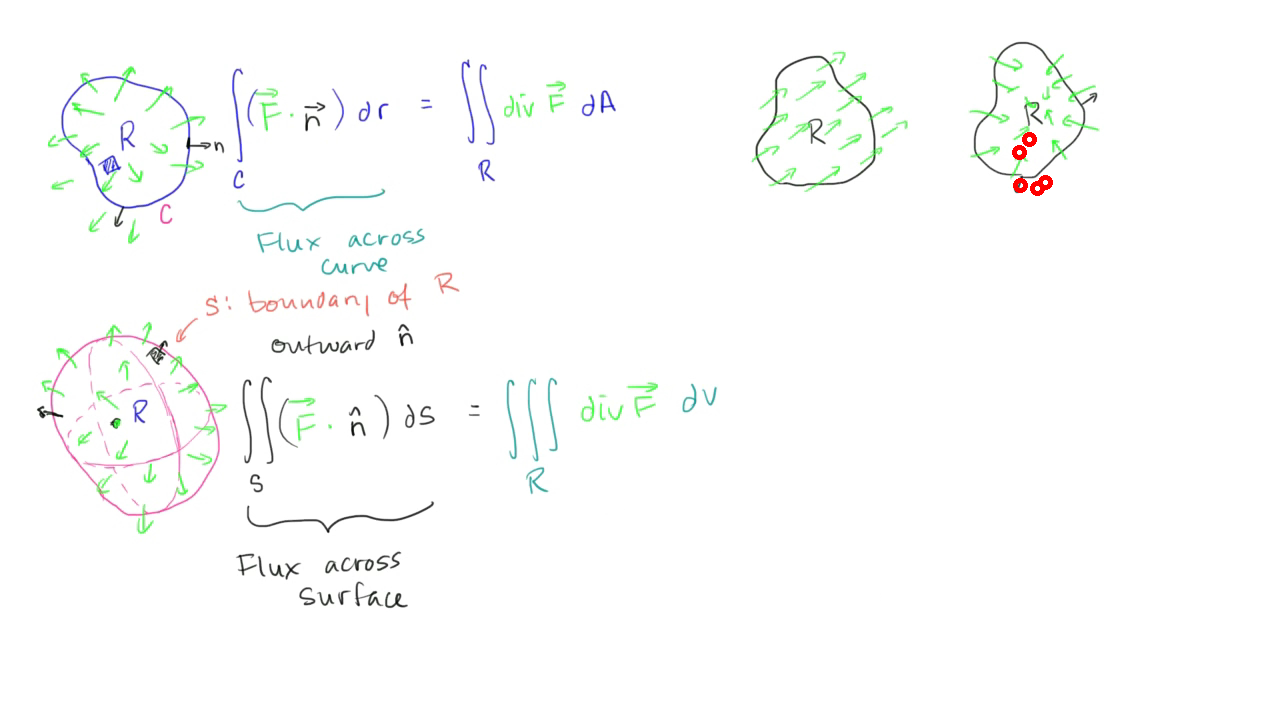 R
n
C
∫_C (F⃗ · n⃗) dr = ∬_R div F⃗ dA
Flux across
curve
S: boundary of R
outward n̂
R
∬_S (F⃗ · n̂) dS = ∭_R div F⃗ dV
Flux across
surface
R
R